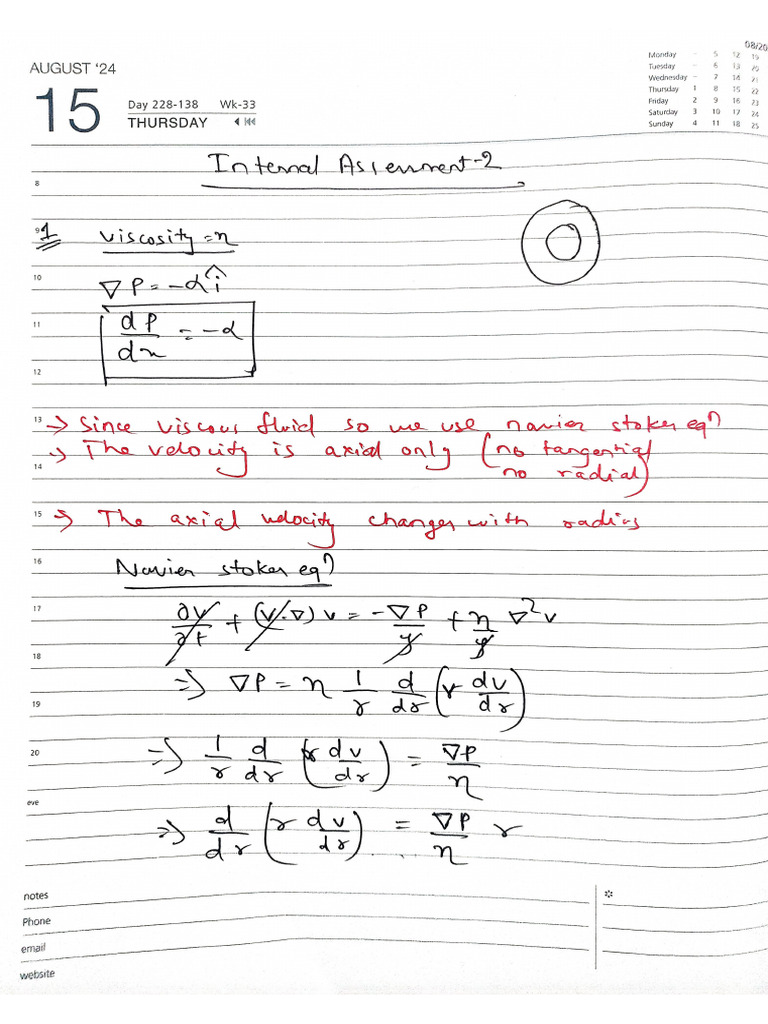 08/20
AUGUST '24
15
Day 228-138 Wk-33
THURSDAY
Monday - 5 12 19
Tuesday - 6 13 20
Wednesday - 7 14 21
Thursday 1 8 15 22
Friday 2 9 16 23
Saturday 3 10 17 24
Sunday 4 11 18 25
Internal Assessment-2
8
9
1
viscosity = η
10
∇P = -αî
11
dP/dx = -α
12
13
→ Since viscous fluid so we use navier stokes eqⁿ
→ The velocity is axial only (no tangential
14
no radial)
15
→ The axial velocity changes with radius
16
Navier stokes eqⁿ
17
∂v/∂t + (v.∇)v = -∇P/ρ + η/ρ ∇²v
18
⇒ ∇P = η 1/r d/dr (r dv/dr)
19
20
⇒ 1/r d/dr (r dv/dr) = ∇P/η
eve
⇒ d/dr (r dv/dr) = ∇P/η r
notes
Phone
email
website